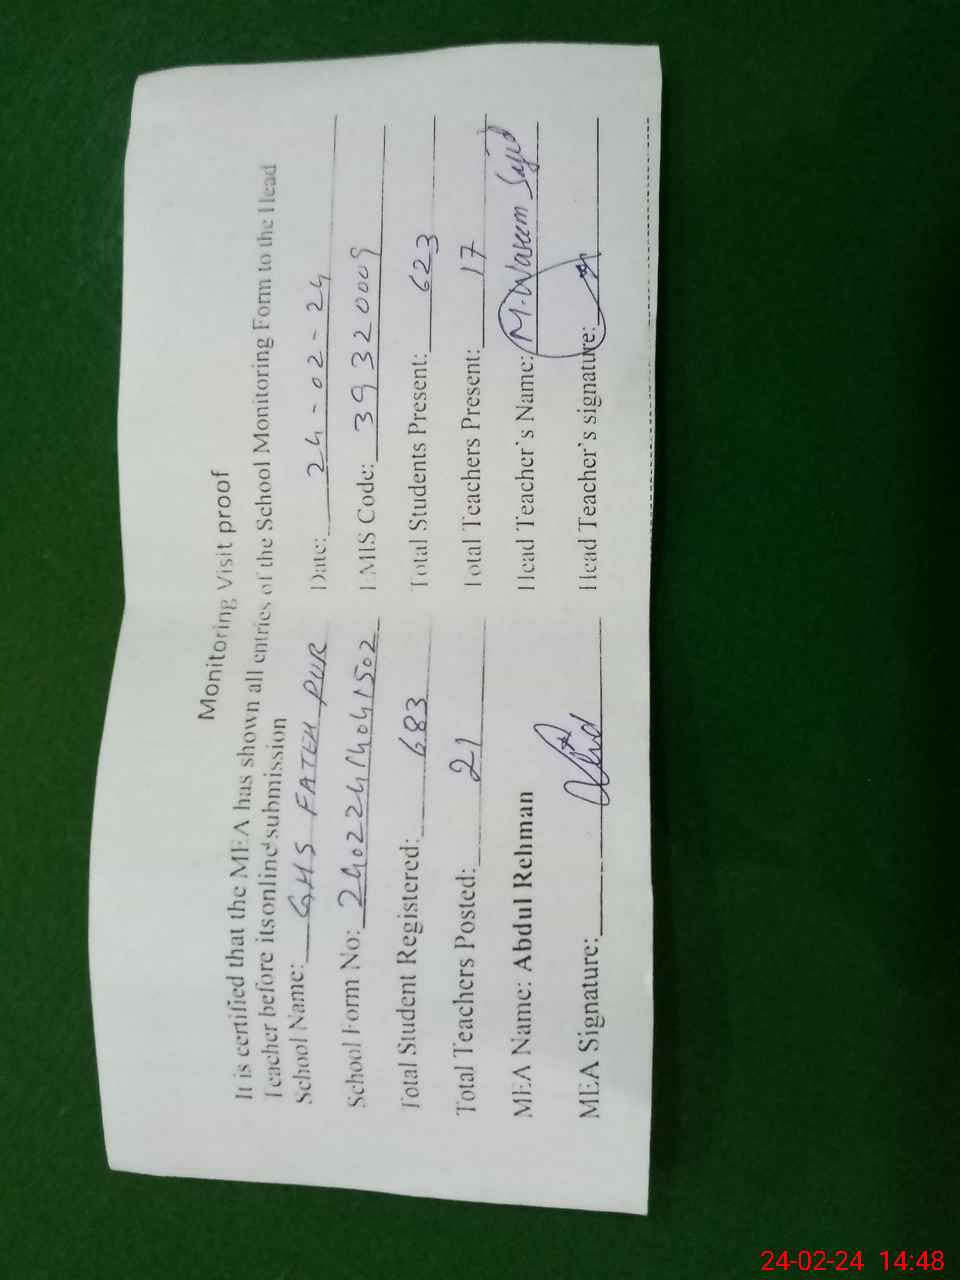 Monitoring Visit proof
It is certified that the MEA has shown all entries of the School Monitoring Form to the Head
Teacher before itsonline submission
School Name: GHS FATEH PUR Date: 24-02-24
School Form No: EMIS Code: 39320009
Total Student Registered: 683 Total Students Present: 623
Total Teachers Posted: 21 Total Teachers Present: 17
MEA Name: Abdul Rehman Head Teacher's Name: M. Waseem Sajid
MEA Signature: Head Teacher's signature:
24-02-24 14:48